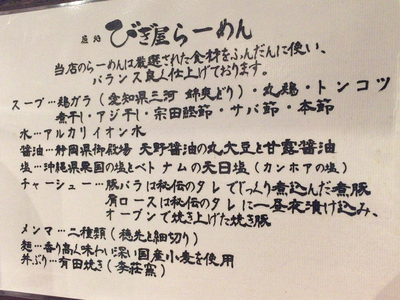 びぎ屋らーめん
当店のらーめんは厳選された食材をふんだんに使い、
バランス良く仕上げております。
スープ…鶏ガラ(愛知県三河 錦爽どり)・丸鶏・トンコツ
煮干し・アジ干し・宗田鰹節・サバ節・本節
水…アルカリイオン水
醤油…静岡県御殿場 天野醤油の丸大豆と甘露醤油
塩…沖縄県粟国の塩とベトナムの天日塩(カンホアの塩)
チャーシュー…豚バラは秘伝のタレでじっくり煮込んだ煮豚
肩ロースは秘伝のタレに一昼夜漬け込み、
オーブンで焼き上げた焼き豚
メンマ…二種類(穂先と細切り)
麺…香り高く味わい深い国産小麦を使用
丼ぶり…有田焼き(李荘窯)